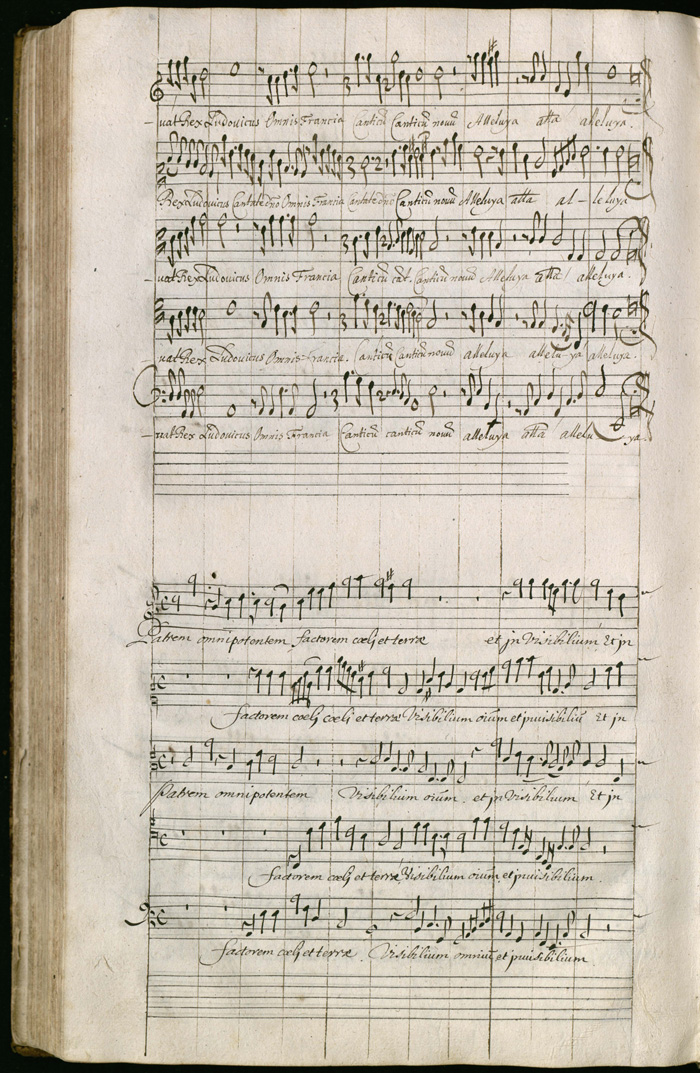 – uat Rex Ludovicus Omnis Francia Canticũ Canticũ novũ Alleluya atta alleluya.
Rex Ludovicus Cantate dño Omnis Francia Cantate dño Canticũ novũ Alleluya atta al – leluya
– uat Rex Ludovicus Omnis Francia Canticũ cãt. Canticũ novũ Alleluya atta alleluya.
– uat Rex Ludovicus Omnis Francia. Canticũ Canticũ novũ alleluya alleluya alleluya.
– uat Rex Ludovicus Omnis Francia Canticũ canticũ novũ alleluya atta allelu ya.
Patrem omnipotentem factorem cœli et terræ et jnvisibilium Et jn
factorem cœli cœli et terræ Visibilium oium et jnuisibiliũ Et jn
Patrem omnipotentem Visibilium oium. et jnvisibilium Et jn
factorem cœli et terræ Visibilium oium et jnuisibilium.
factorem cœli et terræ. Visibilium omniũ et jnuisibilium